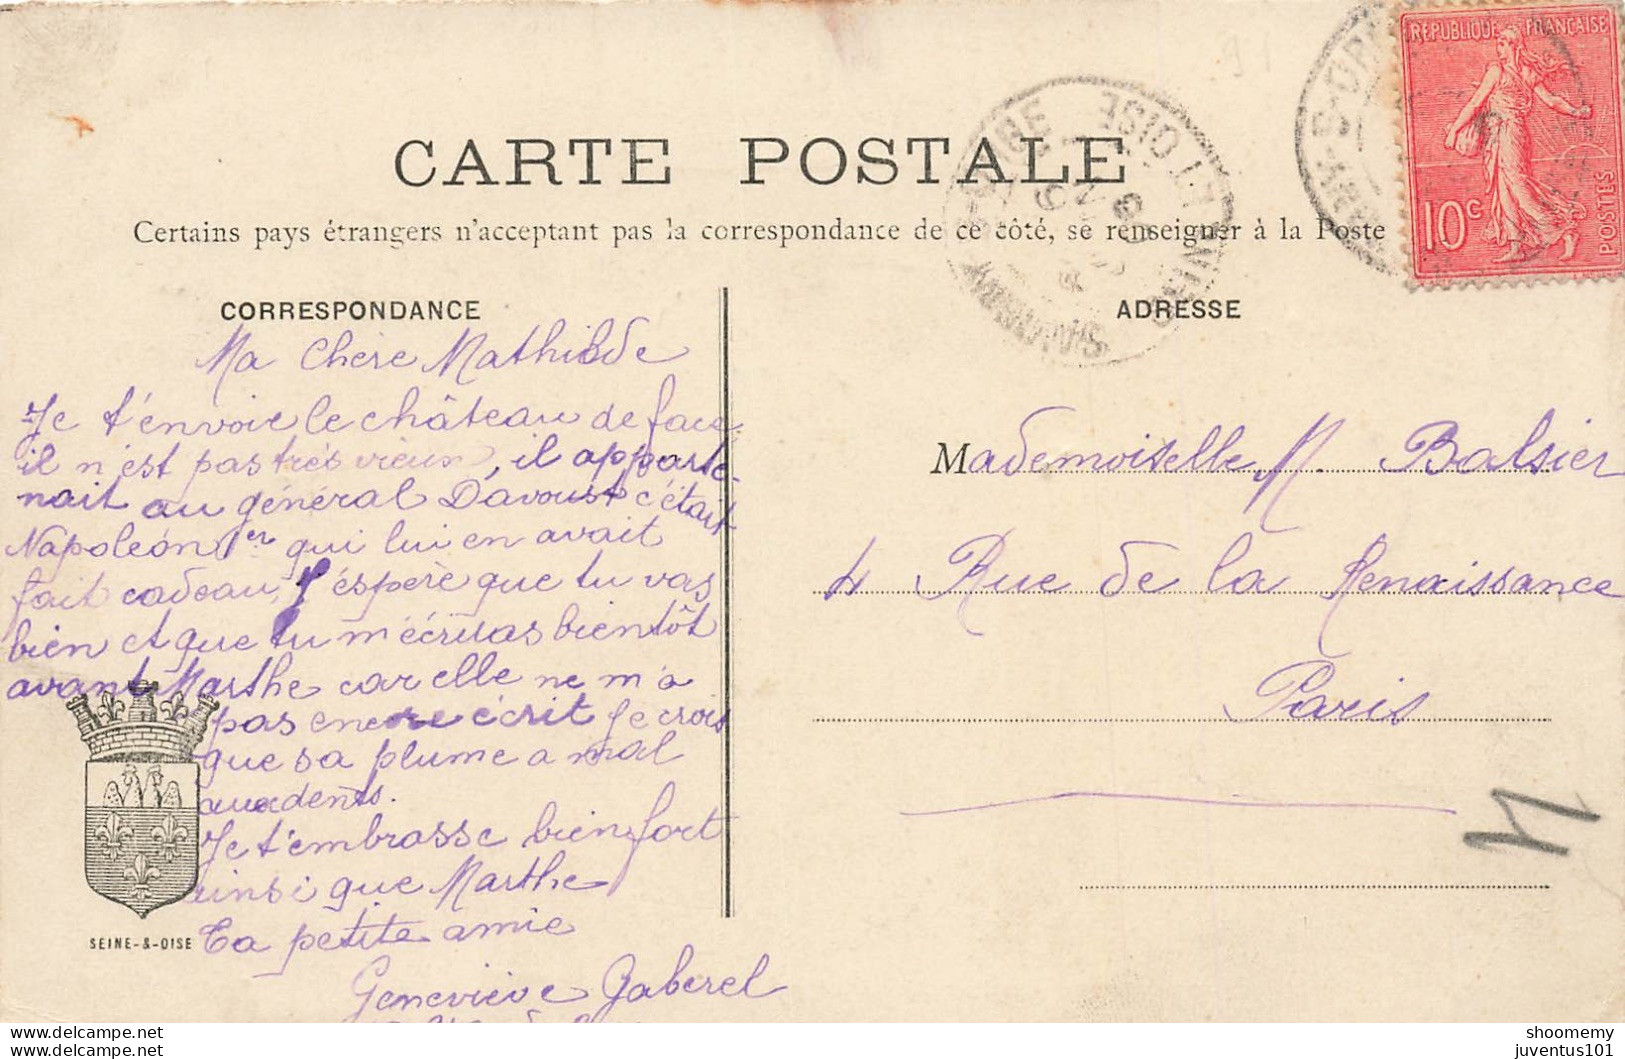 RÉPUBLIQUE FRANÇAISE
10c
POSTES
CARTE POSTALE
Certains pays étrangers n'acceptent pas la correspondance de ce côté, se renseigner à la Poste
SAVIGNY-S-ORGE
SEINE ET OISE
CORRESPONDANCE
Ma Chère Mathilde
Je t'envoie le château de face
il n'est pas très vieux, il apparte-
nait au général Davoust c'était
Napoléon 1er qui lui en avait
fait cadeau, J'éspère que tu vas
bien et que tu m'écriras bientôt
avant Marthe car elle ne m'a
pas encore écrit Je crois
que sa plume a mal
aux dents.
Je t'embrasse bien fort
ainsi que Marthe
Ta petite amie
Geneviève Gaberel
SEINE-&-OISE
ADRESSE
Mademoiselle M. Balsier
4 Rue de la Renaissance
Paris
shoomemy
juventus101